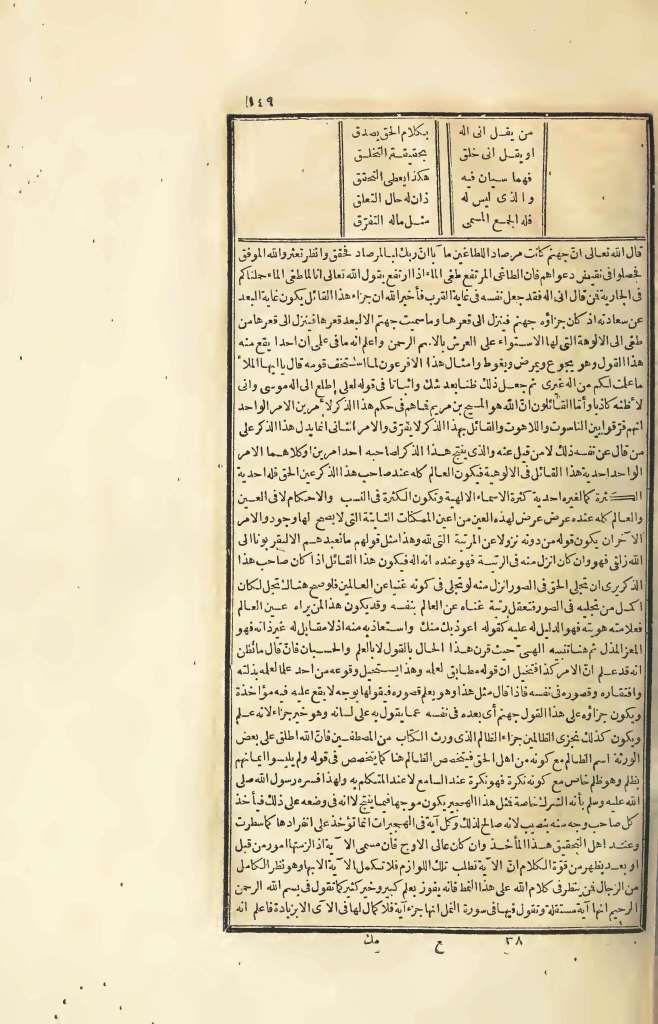 ١٤٩
من يقل انى اله بكلام الحق يصدق
او يقل انى خلق بحقيقة التخلق
فهما سيان فيه هكذا يعطى التحقق
والذى ليس له ذان له حال التعلق
فله الجمع المسمى مثل ماله التفرق
قال الله تعالى ان جهنم كانت مرصادا للطاغين مآبا ان ربك لبالمرصاد فحقق وانظر تعثر والله الموفق
فحصلوا فى نقيض دعواهم فان الطاغى المرتفع طغى الماء اذا ارتفع يقول الله تعالى انا لما طغى الماء حملناكم
فى الجارية فمن قال انى اله فقد جعل نفسه فى غاية القرب فأخبر الله ان جزاء هذا القائل يكون غاية البعد
عن سعادته اذ كان جزاؤه جهنم فينزل الى قعرها وما سميت جهنم الا لبعد قعرها فينزل الى قعرها من
طغى الى الالوهة التى لها الاستواء على العرش بالاسم الرحمن واعلم انه ما فى علمى ان احدا يقع منه
هذا القول وهو يجوع ويمرض ويغوط وامثال هذا الا فرعون لما استخف قومه قال يا ايها الملأ
ما علمت لكم من اله غيرى ثم جعل ذلك ظنا بعد شك واثباتا فى قوله لعلى اطلع الى اله موسى وانى
لأظنه كاذبا وأما القائلون ان الله هو المسيح بن مريم فما هم فى حكم هذا الذكر لأمرين الامر الواحد
انهم فرقوا بين الناسوت واللاهوت والقائل بهذا الذكر لا يفرق والامر الثانى انما يدل هذا الذكر على
من قال عن نفسه ذلك لا من قبل عنه والذى ينتج هذا الذكر لصاحبه احد امرين او كلاهما الامر
الواحد احدية هذا القائل فى الالوهية فيكون العالم كله عند صاحب هذا الذكر عين الحق فله احدية
الكثرة كما لغيره احدية كثرة الاسماء الالهية وتكون الكثرة فى النسب والاحكام لا فى العين
والعالم كله عنده عرض عرض لهذه العين من اعين الممكنات الثابتة التى لا يصح لها وجود والامر
الآخر ان يكون قوله من دونه نزولا عن المرتبة التى لله وهذا مثل قولهم ما نعبدهم الا ليقربونا الى
الله زلفى فهو وان كان انزل منه فى الرتبة فهو عنده انه اله فيكون هذا القائل اذا كان صاحب هذا
الذكر يرى ان تجلى الحق فى الصور انزل منه لو تجلى فى كونه غنيا عن العالمين فلو صح هنالك تجل لكان
اكمل من تجليه فى الصور فتعقل رتبة غناه عن العالم بنفسه وقد يكون هذا لمن يراه عين العالم
فعلامته هويته فهو الدليل له عليه كقوله اعوذ بك منك واستعاذ به منه اذ لا مقابل له غير ذاته فهو
المعز المذل ثم هنا تنبيه الهى حيث قرن هذا الحال بالقول لا بالعلم والحسبان فان قال ما تظن
انه قد علم ان الامر كذا فتخيل ان قوله مطابق لعلمه وهذا يستحيل وقوعه من احد علما لعلمه بذلته
وافتقاره وقصوره فى نفسه فاذا قال مثل هذا وهو يعلم قصوره فيقولها بوجه لا يقع عليه فيه مؤاخذة
ويكون جزاؤه على هذا القول جهنم أى بعده فى نفسه عما يقول به على لسانه وهو خير جزاء لانه علم
ويكون كذلك نجزى الظالمين جزاء الظالم الذى ورث الكتاب من المصطفين فان الله اطلق على بعض
الورثة اسم الظالم مع كونه من اهل الحق فيتخصص الظالم هنا كما يتخصص فى قوله ولم يلبسوا ايمانهم
بظلم وهو ظلم خاص مع كونه نكرة فهو نكرة عند السامع لا عند المتكلم به ولهذا فسره رسول الله صلى
الله عليه وسلم بأنه الشرك خاصة فمثل هذا الهجير يكون موجها فيما ينتج لا انه فى وضعه على ذلك فيأخذ
كل صاحب وجه منه بنصيب لانه صالح لذلك وكل آية فى الهجيرات انما تؤخذ على انفرادها كما سطرت
وعند اهل التحقيق هذا المأخذ وان كان عالى الاوج فان مسمى الآية اذا لزمتها امور من قبل
او بعد يظهر من قوة الكلام ان الآية تطلب تلك اللوازم فلا تكمل الآية الا بها وهو نظر الكامل
من الرجال فمن ينظر فى كلام الله على هذا النمط فانه يفوز بعلم كبير وخير كثير كما نقول فى بسم الله الرحمن
الرحيم انها آية مستقلة ونقول فيها فى سورة النمل انها جزء آية فلا كمال لها فى الآى الا بزيادة فاعلم انه
٣٨ ع مك